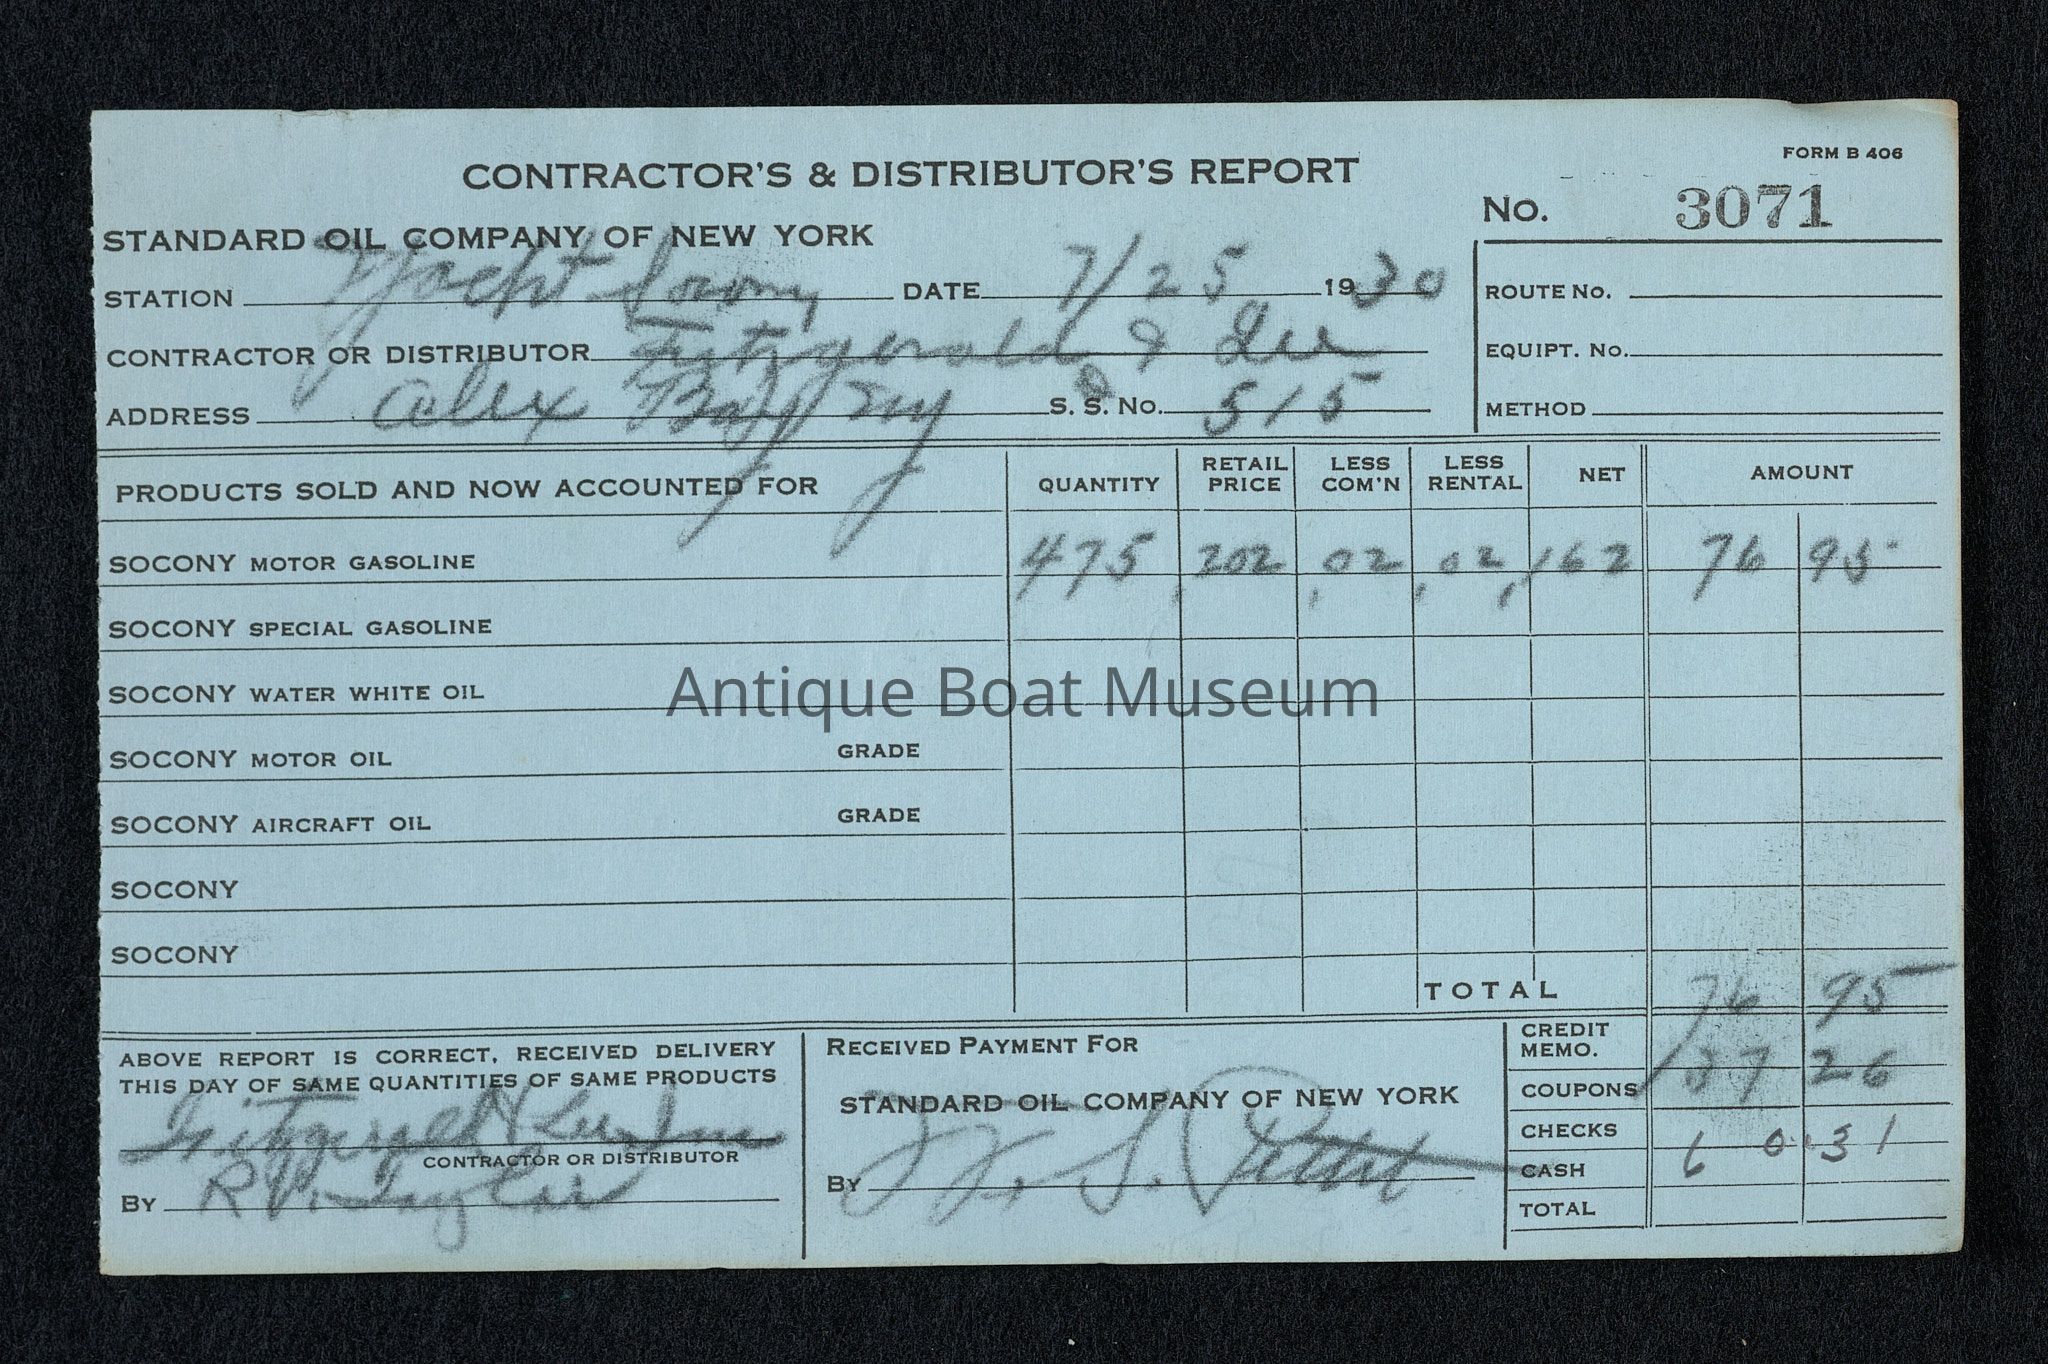 FORM B 406
CONTRACTOR'S & DISTRIBUTOR'S REPORT
No. 3071
STANDARD OIL COMPANY OF NEW YORK
STATION Yacht Socony DATE 7/25 1930
ROUTE No.
CONTRACTOR OR DISTRIBUTOR Fitzgerald & Lee
EQUIPT. No.
ADDRESS Alex Bay NY S. S. No. 515
METHOD
PRODUCTS SOLD AND NOW ACCOUNTED FOR QUANTITY RETAIL PRICE LESS COM'N LESS RENTAL NET AMOUNT
SOCONY MOTOR GASOLINE 475 .202 .02 .02 .162 76 95
SOCONY SPECIAL GASOLINE
SOCONY WATER WHITE OIL
Antique Boat Museum
SOCONY MOTOR OIL GRADE
SOCONY AIRCRAFT OIL GRADE
SOCONY
SOCONY
TOTAL 76 95
ABOVE REPORT IS CORRECT, RECEIVED DELIVERY
THIS DAY OF SAME QUANTITIES OF SAME PRODUCTS
Fitzgerald & Lee Inc
CONTRACTOR OR DISTRIBUTOR
BY R.V.
RECEIVED PAYMENT FOR
STANDARD OIL COMPANY OF NEW YORK
BY
CREDIT MEMO.
COUPONS 37 26
CHECKS
CASH 60.31
TOTAL